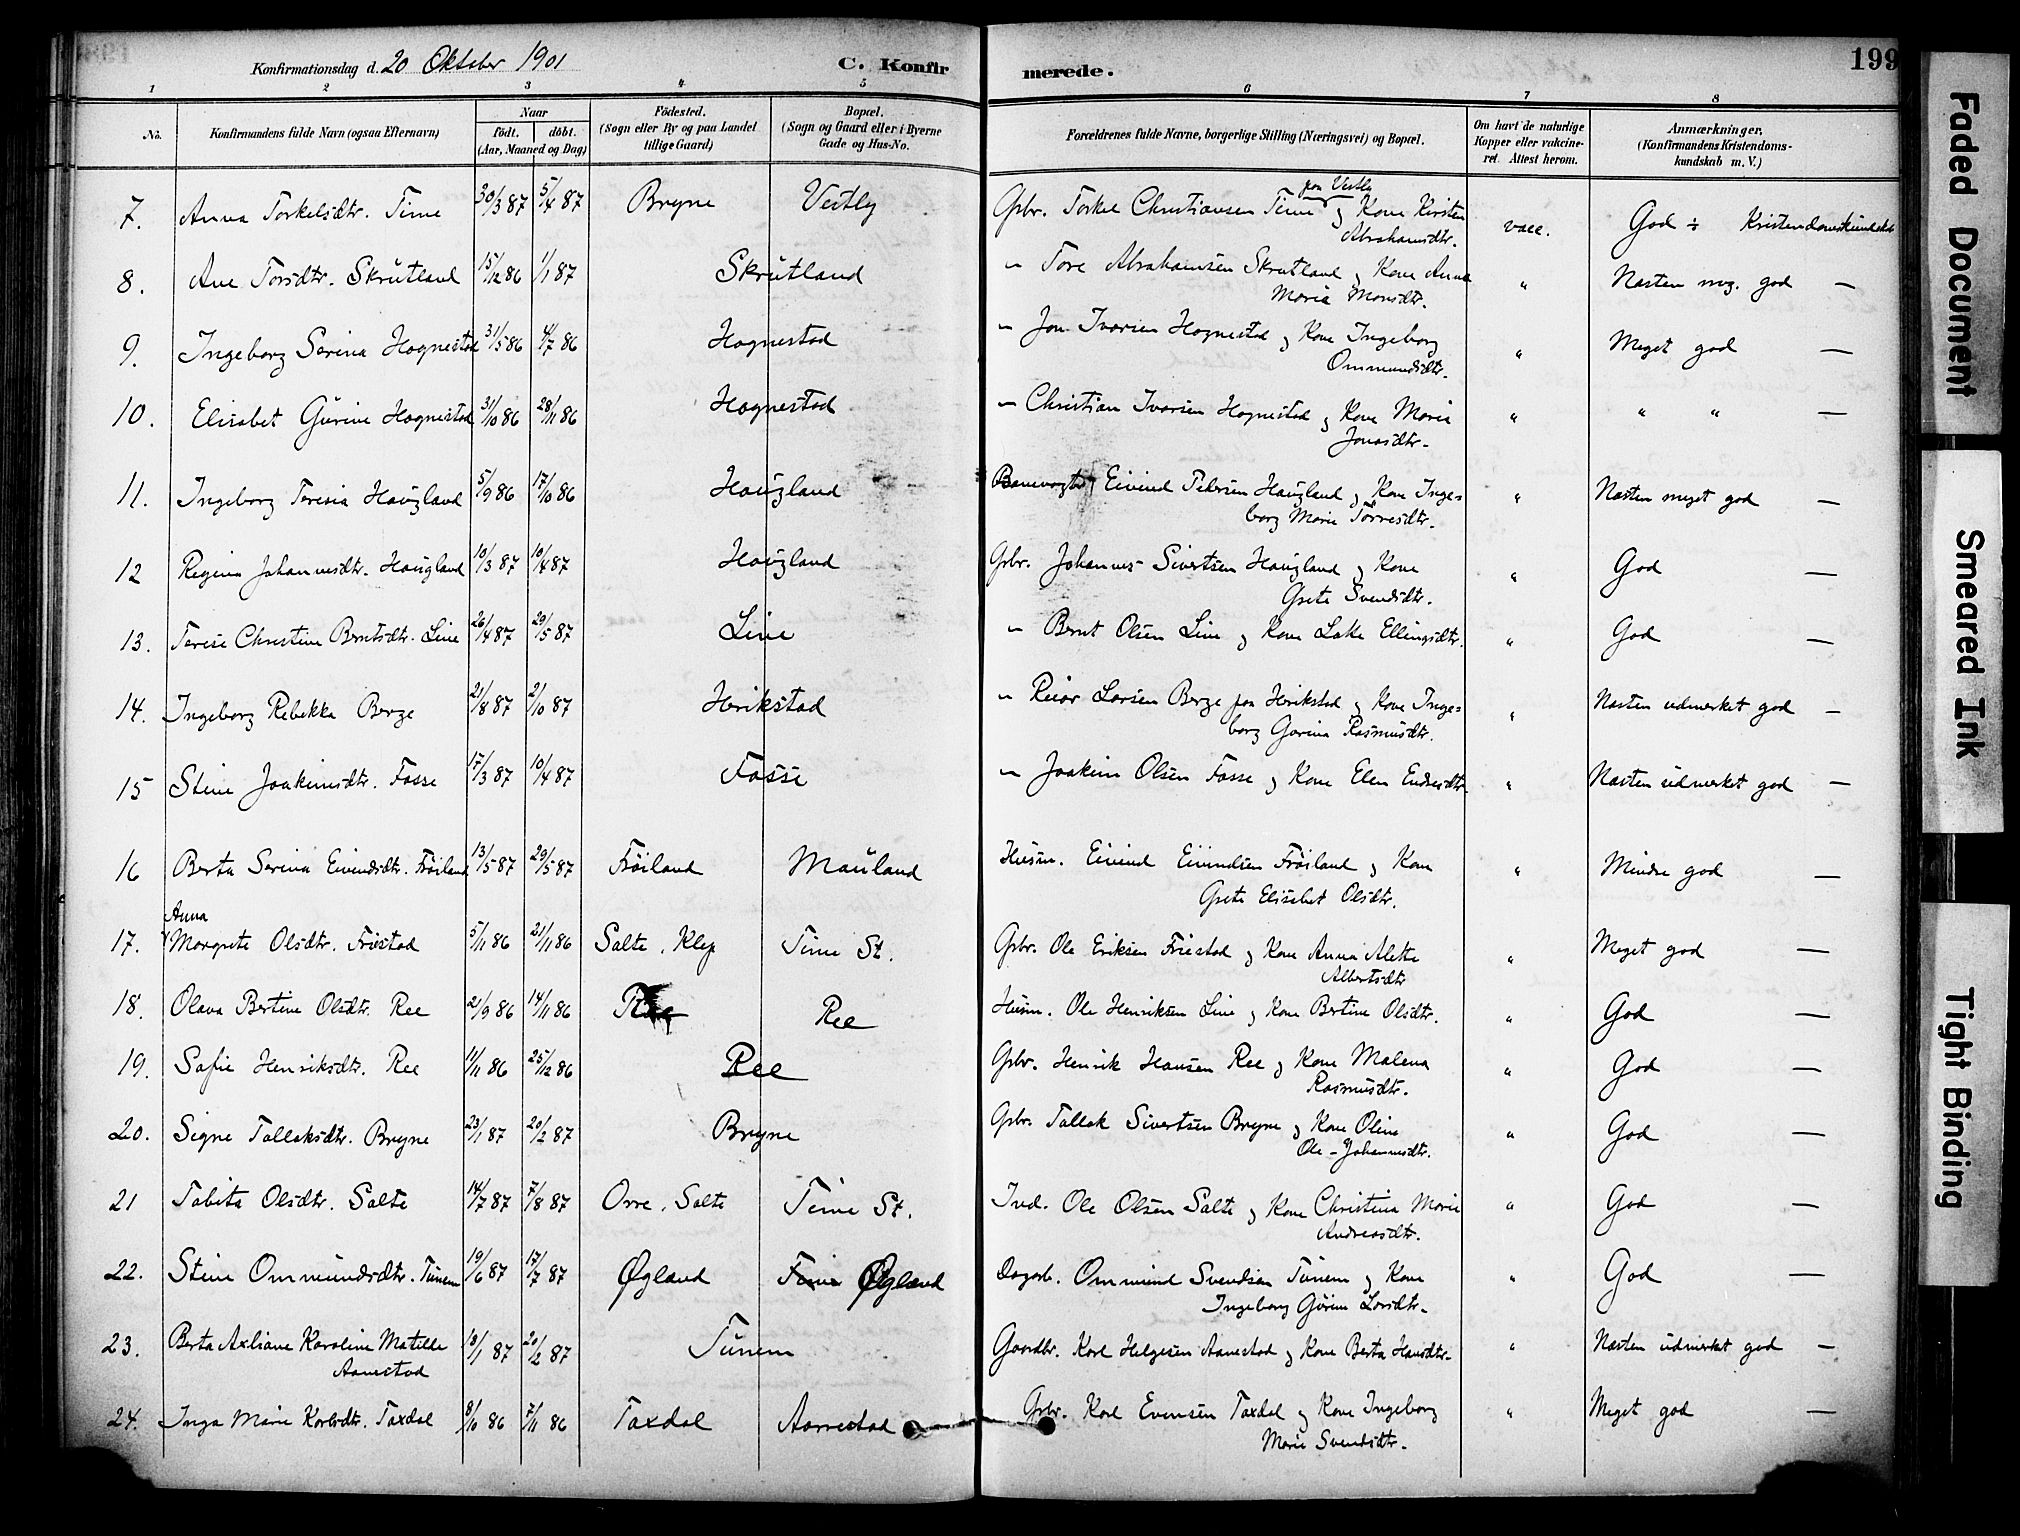 Konfirmationsdag d. 20 Oktober 1901 C. Konfirmerede. 199
1 2 3 4 5 6 7 8
No. Konfirmandens fulde Navn (ogsaa Efternavn) Naar født. døbt. (Aar, Maaned og Dag) Fødested. (Sogn eller By og paa Landet tillige Gaard) Bopæl. (Sogn og Gaard eller i Byerne Gade og Hus-No. Forældrenes fulde Navne, borgerlige Stilling (Næringsvei) og Bopæl. Om havt de naturlige Kopper eller vakcineret. Attest herom. Anmærkninger, (Konfirmandens Kristendomskundskab m. V.)
7. Anna Torkelsdtr. Time 30/3 87 5/4 87 Bryne Vestly Gbr. Torkel Christiansen Time paa Vestly og Kone Kirsten Abrahamsdtr. vacc. God ÷ Kristendomskundskab
8. Ane Torsdtr. Skrutland 15/12 86 1/1 87 Skrutland " Tore Abrahamsen Skrutland og Kone Anna Maria Monsdtr. " Næsten meg. god —
9. Ingeborg Serina Hognestad 31/5 86 4/7 86 Hognestad " Jon Ivarsen Hognestad og Kone Ingeborg Ommundsdtr. " Meget god —
10. Elisabet Gurine Hognestad 31/10 86 28/11 86 Hognestad " Christian Ivarsen Hognestad og Kone Maria Jonasdtr. " " " —
11. Ingeborg Teresia Haugland 5/9 86 17/10 86 Haugland Banevogter Eivind Pedersen Haugland og Kone Ingeborg Marie Torresdtr. " Næsten meget god —
12 Regina Johannesdtr. Haugland 10/3 87 10/4 87 Haugland Gbr. Johannes Sivertsen Haugland og Kone Grete Svendsdtr. " God —
13. Terese Christine Berntsdtr. Line 26/4 87 29/5 87 Line " Bernt Olsen Line og Kone Lake Ellingsdtr. " God —
14. Ingeborg Rebekka Berge 21/8 87 2/10 87 Herikstad " Reiar Larsen Berge paa Herikstad og Kone Ingeborg Gurina Rasmusdtr. " Næsten udmerket god —
15 Stine Joakimsdtr. Fosse 17/3 87 10/4 87 Fosse " Joakim Olsen Fosse og Kone Elen Endresdtr. " Næsten udmerket god —
16 Berta Serina Eivindsdtr. Frøiland 13/5 87 29/5 87 Frøiland Mauland Husm. Eivind Eivindsen Frøiland og Kone Grete Elisabet Olsdtr. " Mindre god —
17. Anna Margrete Olsdtr. Friestad 5/11 86 21/11 86 Salte, Klep Time St. Gbr. Ole Eriksen Friestad og Kone Anna Alette Albertsdtr " Meget god —
18. Olava Bertine Olsdtr. Ree 21/9 86 14/11 86 Ree Husm. Ole Henriksen Line og Kone Bertine Olsdtr. " God —
19. Sofie Henriksdtr. Ree 11/11 86 25/12 86 Ree Gbr. Henrik Hansen Ree og Kone Malena Rasmusdtr. " God —
20. Signe Tallaksdtr. Bryne 23/1 87 20/2 87 Bryne Gbr. Tallak Sivertsen Bryne og Kone Oline Ole-Johannesdtr. " God —
21 Tabita Olsdtr. Salte 14/7 87 7/8 87 Orre, Salte Time St. Ind. Ole Olsen Salte og Kone Christina Marie Andreasdtr. " God —
22. Stine Ommundsdtr. Tunem 19/6 87 17/7 87 Øgland Time Øgland Dagarb. Ommund Svendsen Tunem og Kone Ingeborg Gurine Larsdtr. " God —
23. Berta Axliane Karoline Matilde Aanestad 18/1 87 20/2 87 Tunem Gaardbr. Karl Helgesen Aanestad og Kone Berta Hansdtr. " Næsten udmerket god —
24. Inga Marie Karlsdtr. Taxdal 8/10 86 7/11 86 Taxdal Aarrestad Gbr. Karl Evensen Taxdal og Kone Ingeborg Marie Svendsdtr. " Meget god —
Faded Document
Smeared Ink
Tight Binding